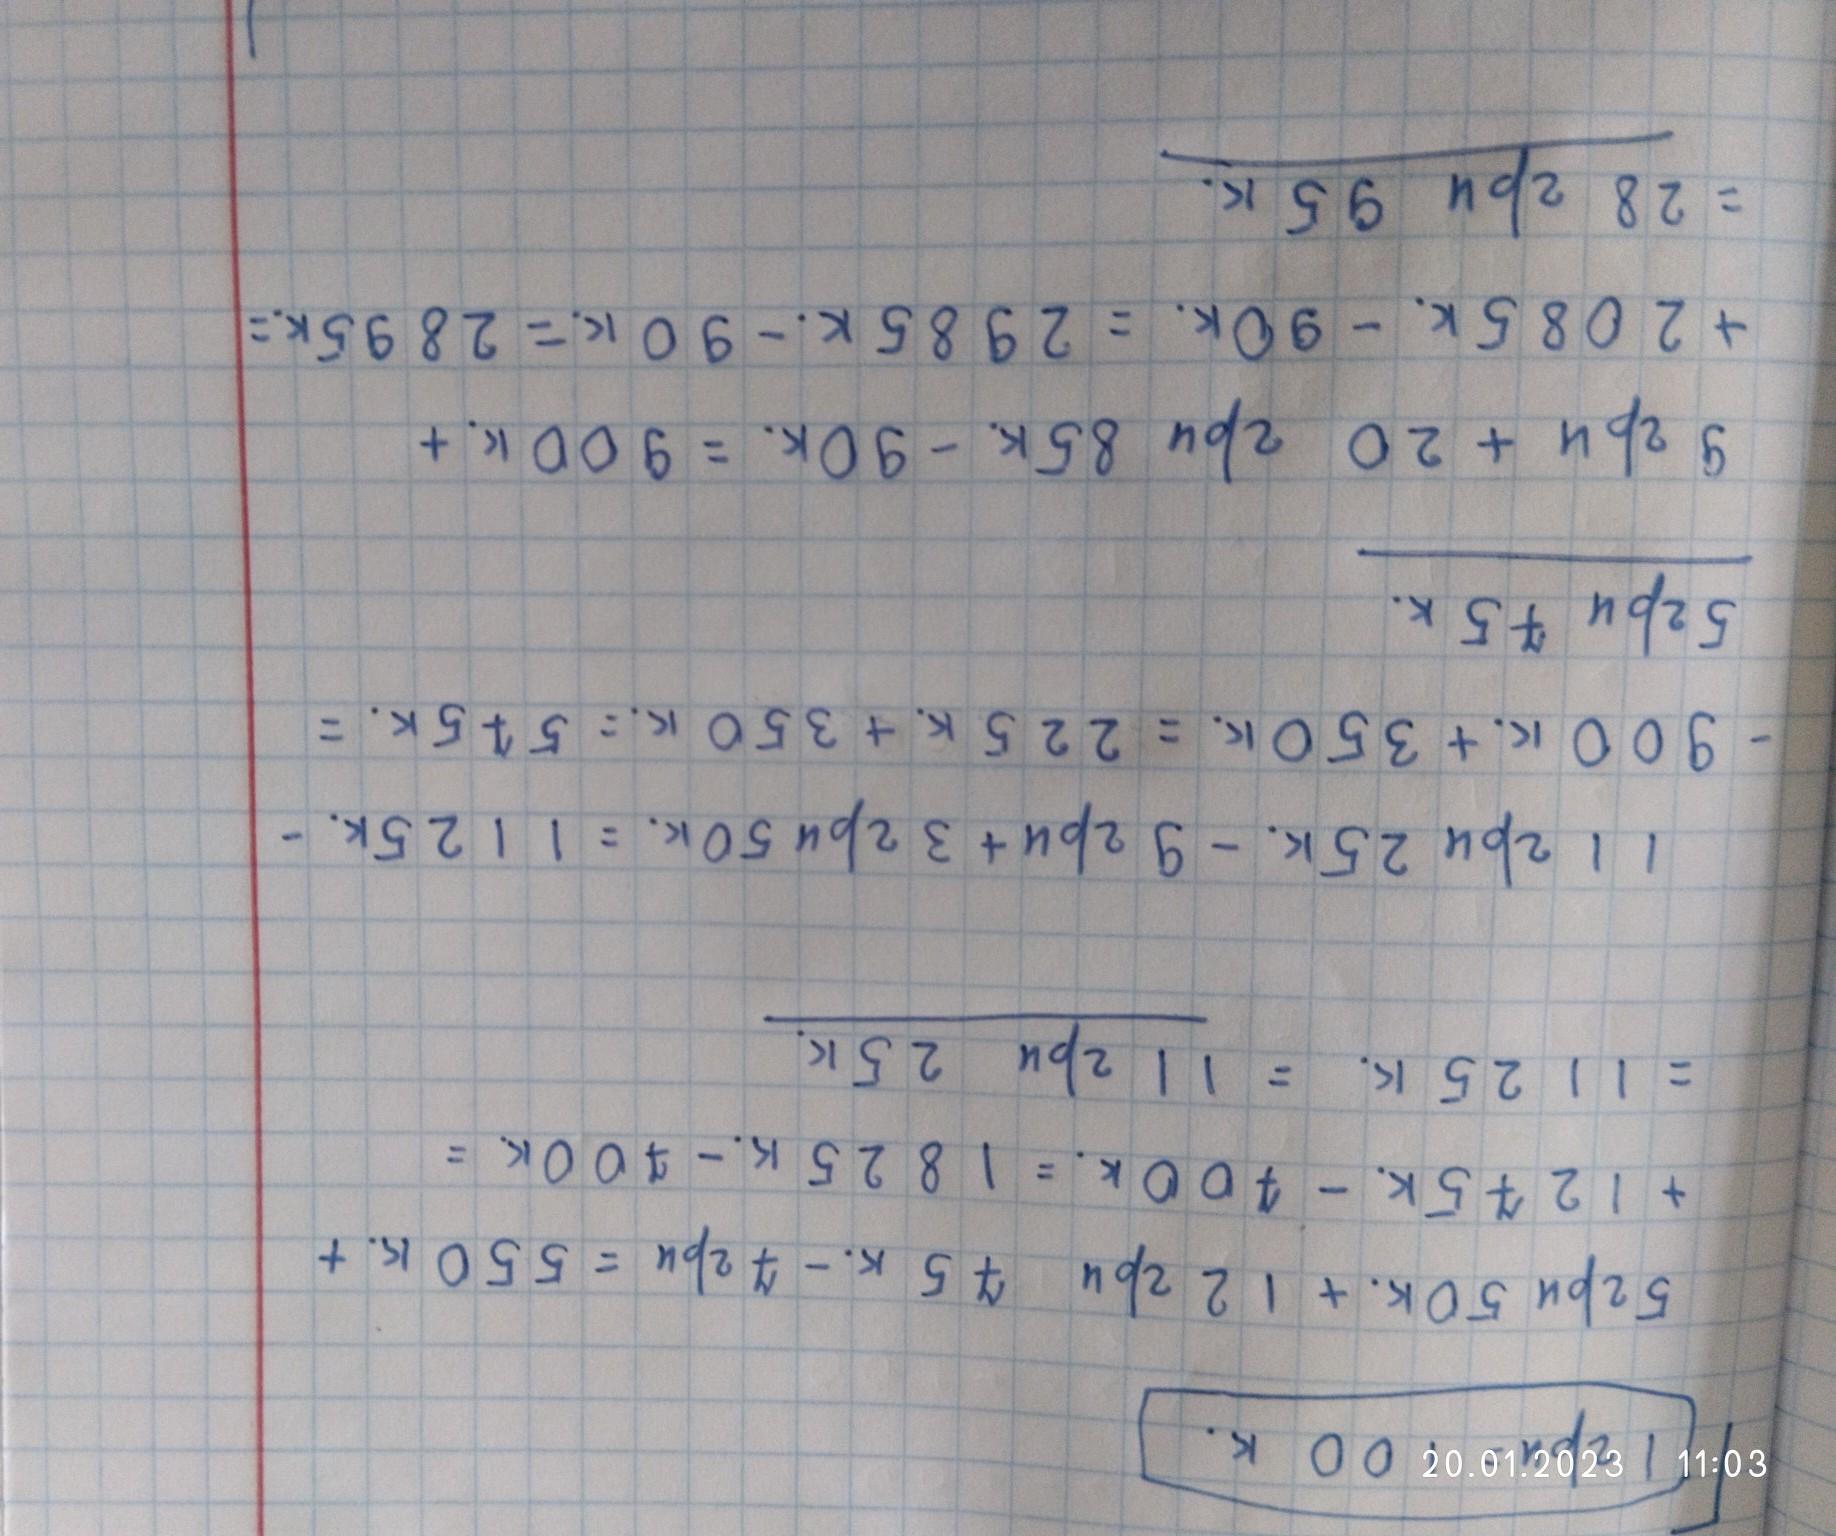 1 грн = 100 к.
5 грн 50 к. + 12 грн 75 к. - 7 грн = 550 к. +
+ 1275 к. - 700 к. = 1825 к. - 700 к. =
= 1125 к. = 11 грн 25 к.
11 грн 25 к. - 9 грн + 3 грн 50 к. = 1125 к. -
- 900 к. + 350 к. = 225 к. + 350 к. = 575 к. =
5 грн 75 к.
9 грн + 20 грн 85 к. - 90 к. = 900 к. +
+ 2085 к. - 90 к. = 2985 к. - 90 к. = 2895 к. =
= 28 грн 95 к.
20.01.2023 11:03